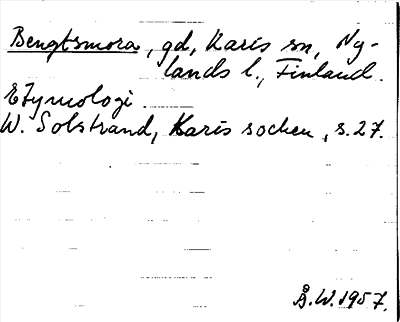 Bengtsmora, gd, Karis sn, Ny-
lands l., Finland.
Etymologi
W. Solstrand, Karis socken, s. 27.
Å.W. 1957.